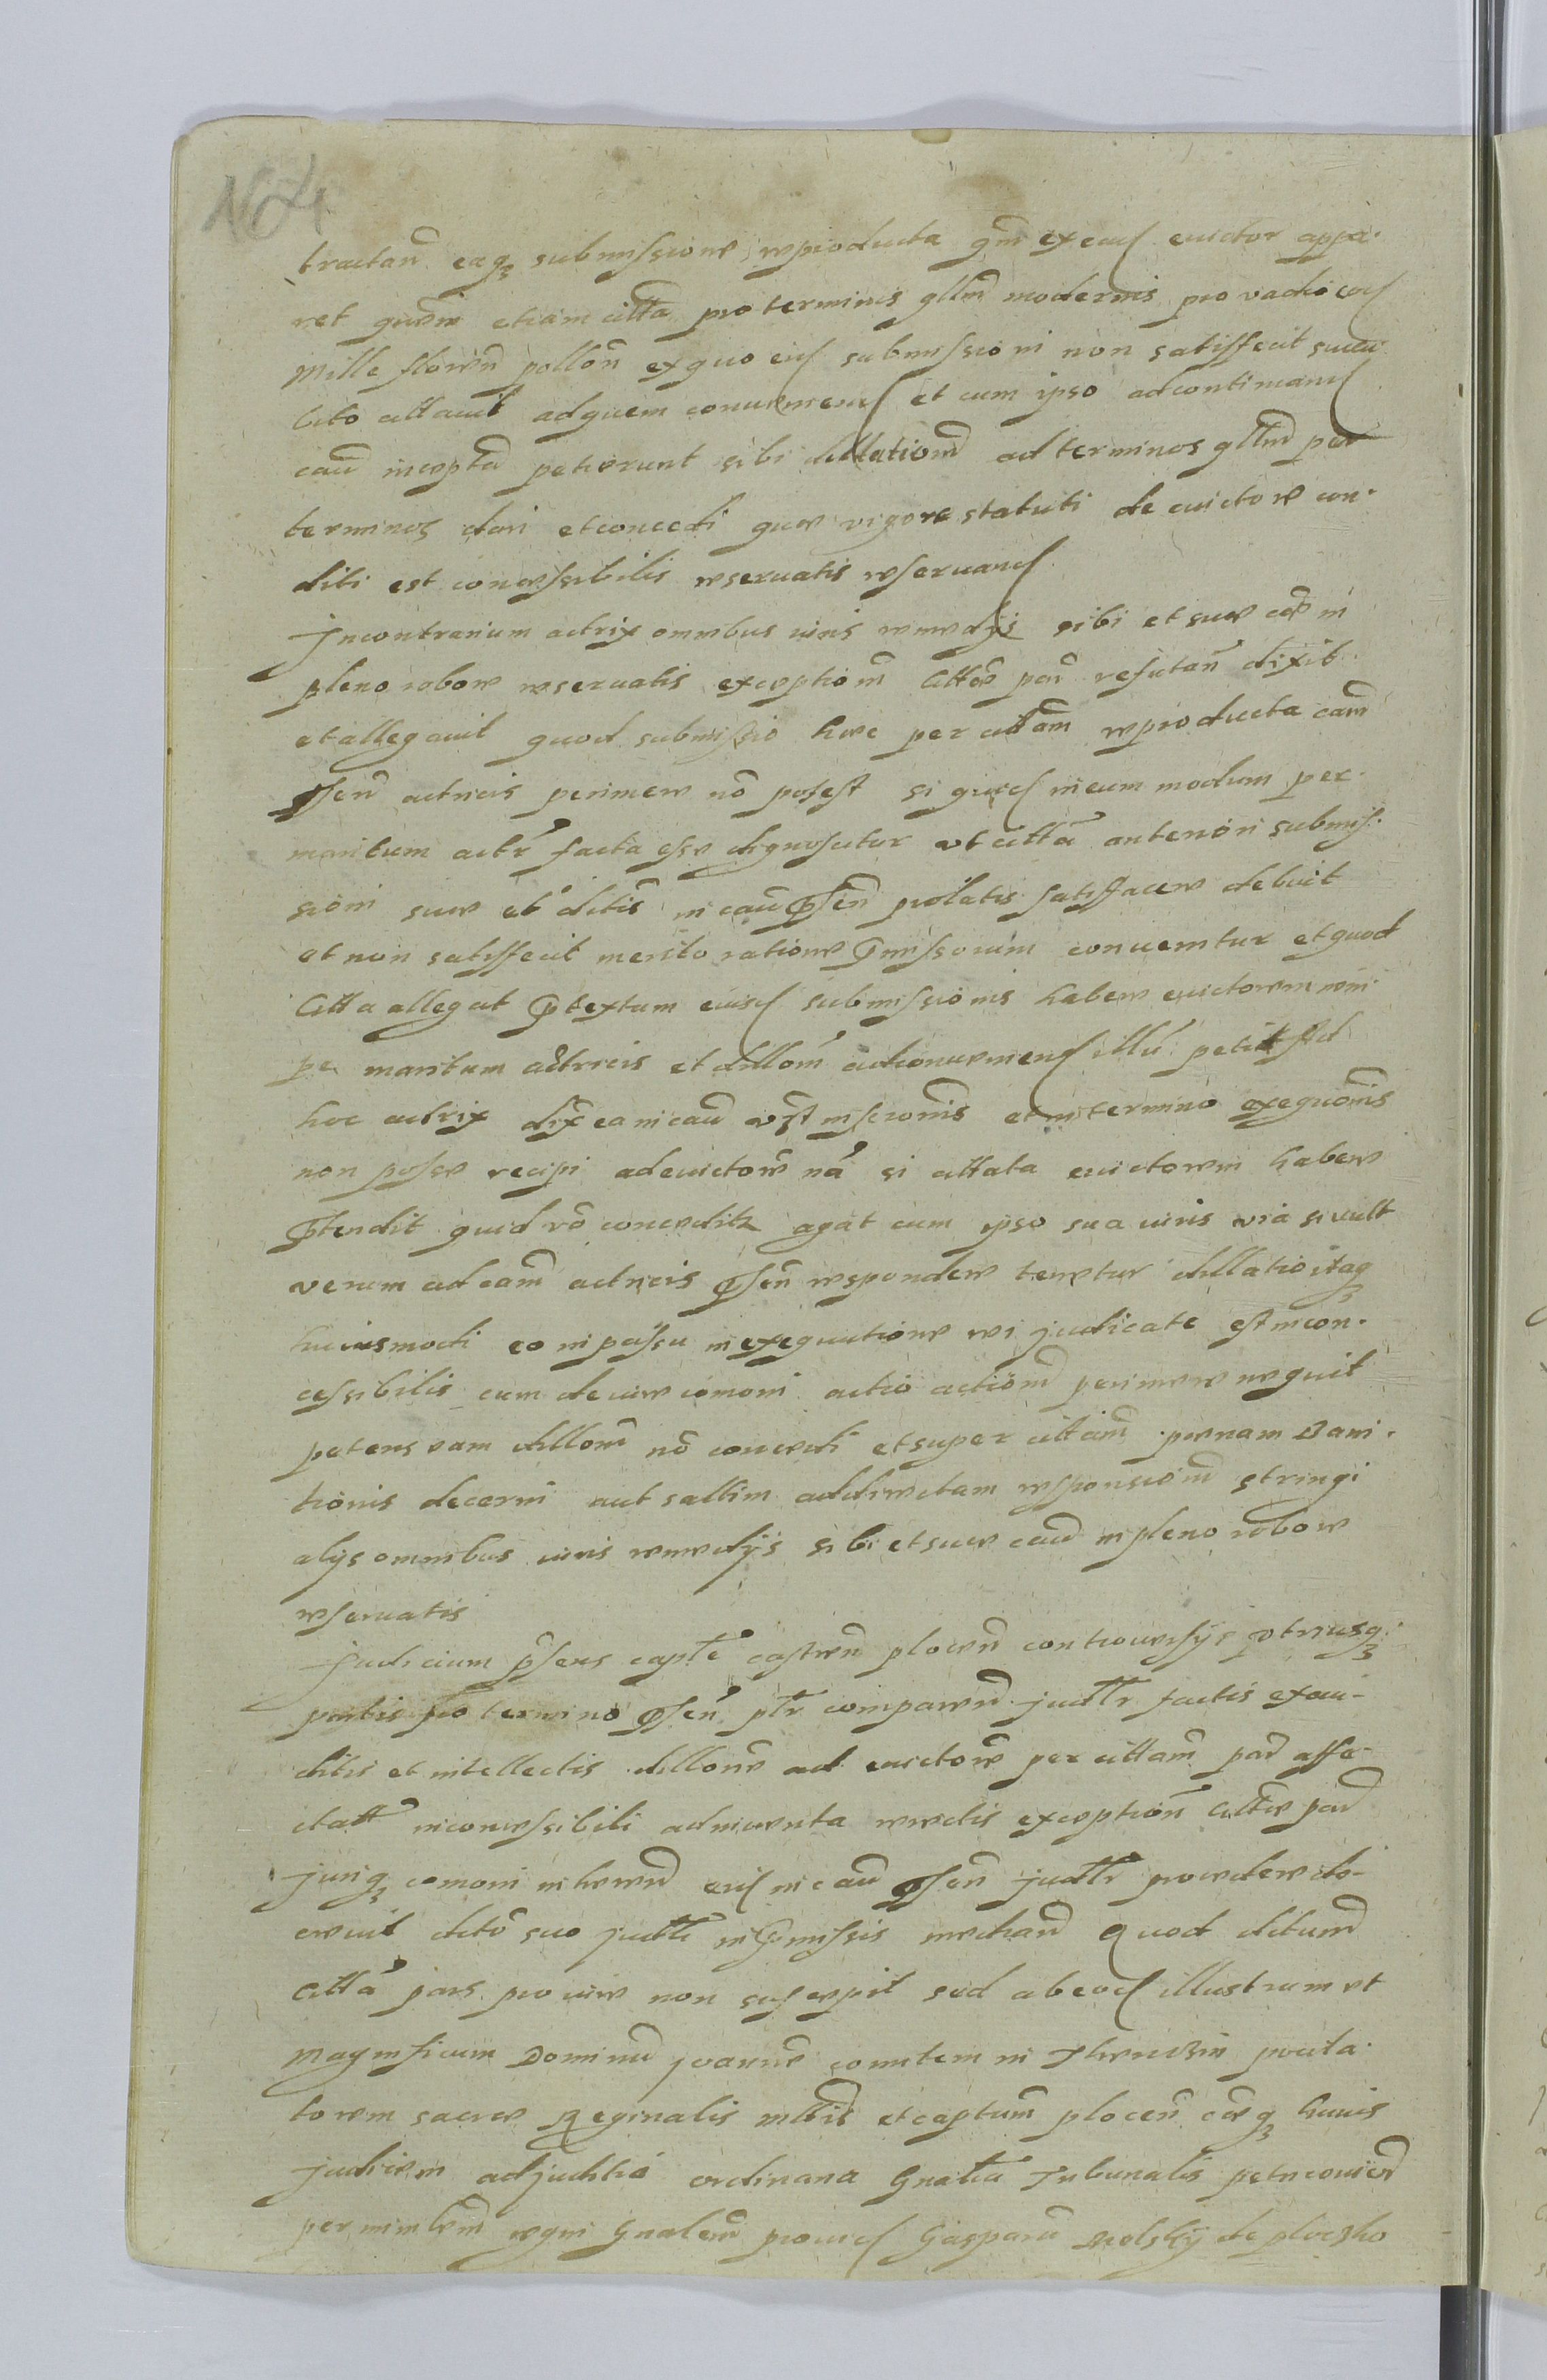 tractan eaq₃ submissione reproducta qm ex eaq euictor appa.
ret quem etiam citta pro terminis gllm modernis pro vadio eoq
Mille floren pollon ex quo eiq submissioni non satisfecit
Cito cittauit ad quem conueniend et cum ipso ad continuand
cau incepta petierunt sibi dillationem ad terminos gllm per
terminos dari et concedi quae vigore statuti de euictore con.
diti est concessibilis reseruatis reseruand
Incontrarium actrix omnibus iuris remedijs sibi et suae cae in
pleno robore reseruatis exceptionem Cittae par refutan dixit
et allegauit quod submissio haec per cittam reproducta cam
psen actricis perimere no potest si quid in eum modum per.
maritum actr facta esse dignoscitur vt citta anteriori submis.
sioni suae et ditis in cau psen prolatis satisfacere debuit
et non satisfecit merito ratione pmissorum conuenitur et quod
Citta allegat ptextum eiusd submissionis habere euictorem
per maritum actricis et dillom ad conueniend illu petit Ad
hoc actrix dix ea in cau et in termino exequonis
non posse recipi ad euictore na si cittata euictorem habere
ptendit quid vo conceditz agat cum ipso sua iuris via si vult
verum ad cam actricis psen respondere tenetur dillatio itaq₃
huiusmodi eo in passu in exequutione rei judicate est incon.
cessibilis cum de iure comoni actio actionem perimere nequit
petens eam dillom no concedi et super cittam poenam Bani.
tionis decerni aut saltim ad directam responsionem stringi
alijs omnibus iuris remedijs sibi et suae cau in pleno robore
reseruatis
Judicium psens capte castren plocen controuersijs vtriusq₃
partis pro termino psen ptr comparen judtr factis exau-
ditis et intellectis dillone ad euictore per cittam par affe-
ctatt inconcessibili adinuenta reiectis exception Cittae par
juriq₃ comoni inheren eid in cau psen judtr procedere de-
creuit dito suo judtr in pmissis median Quod ditum
Citta pars pro iure non suscepit sed ab eod illustrem et
Magnificum Dominu joanne comitem in Thenczin pocila.
torem sacrae Reginalis mttis et captum plocen caeq₃ huius
Judicem ad judtia ordinaria Gnalia Tribunalis petricouien
per ministrm regni Gnalem prouid Gasparu de ploczko